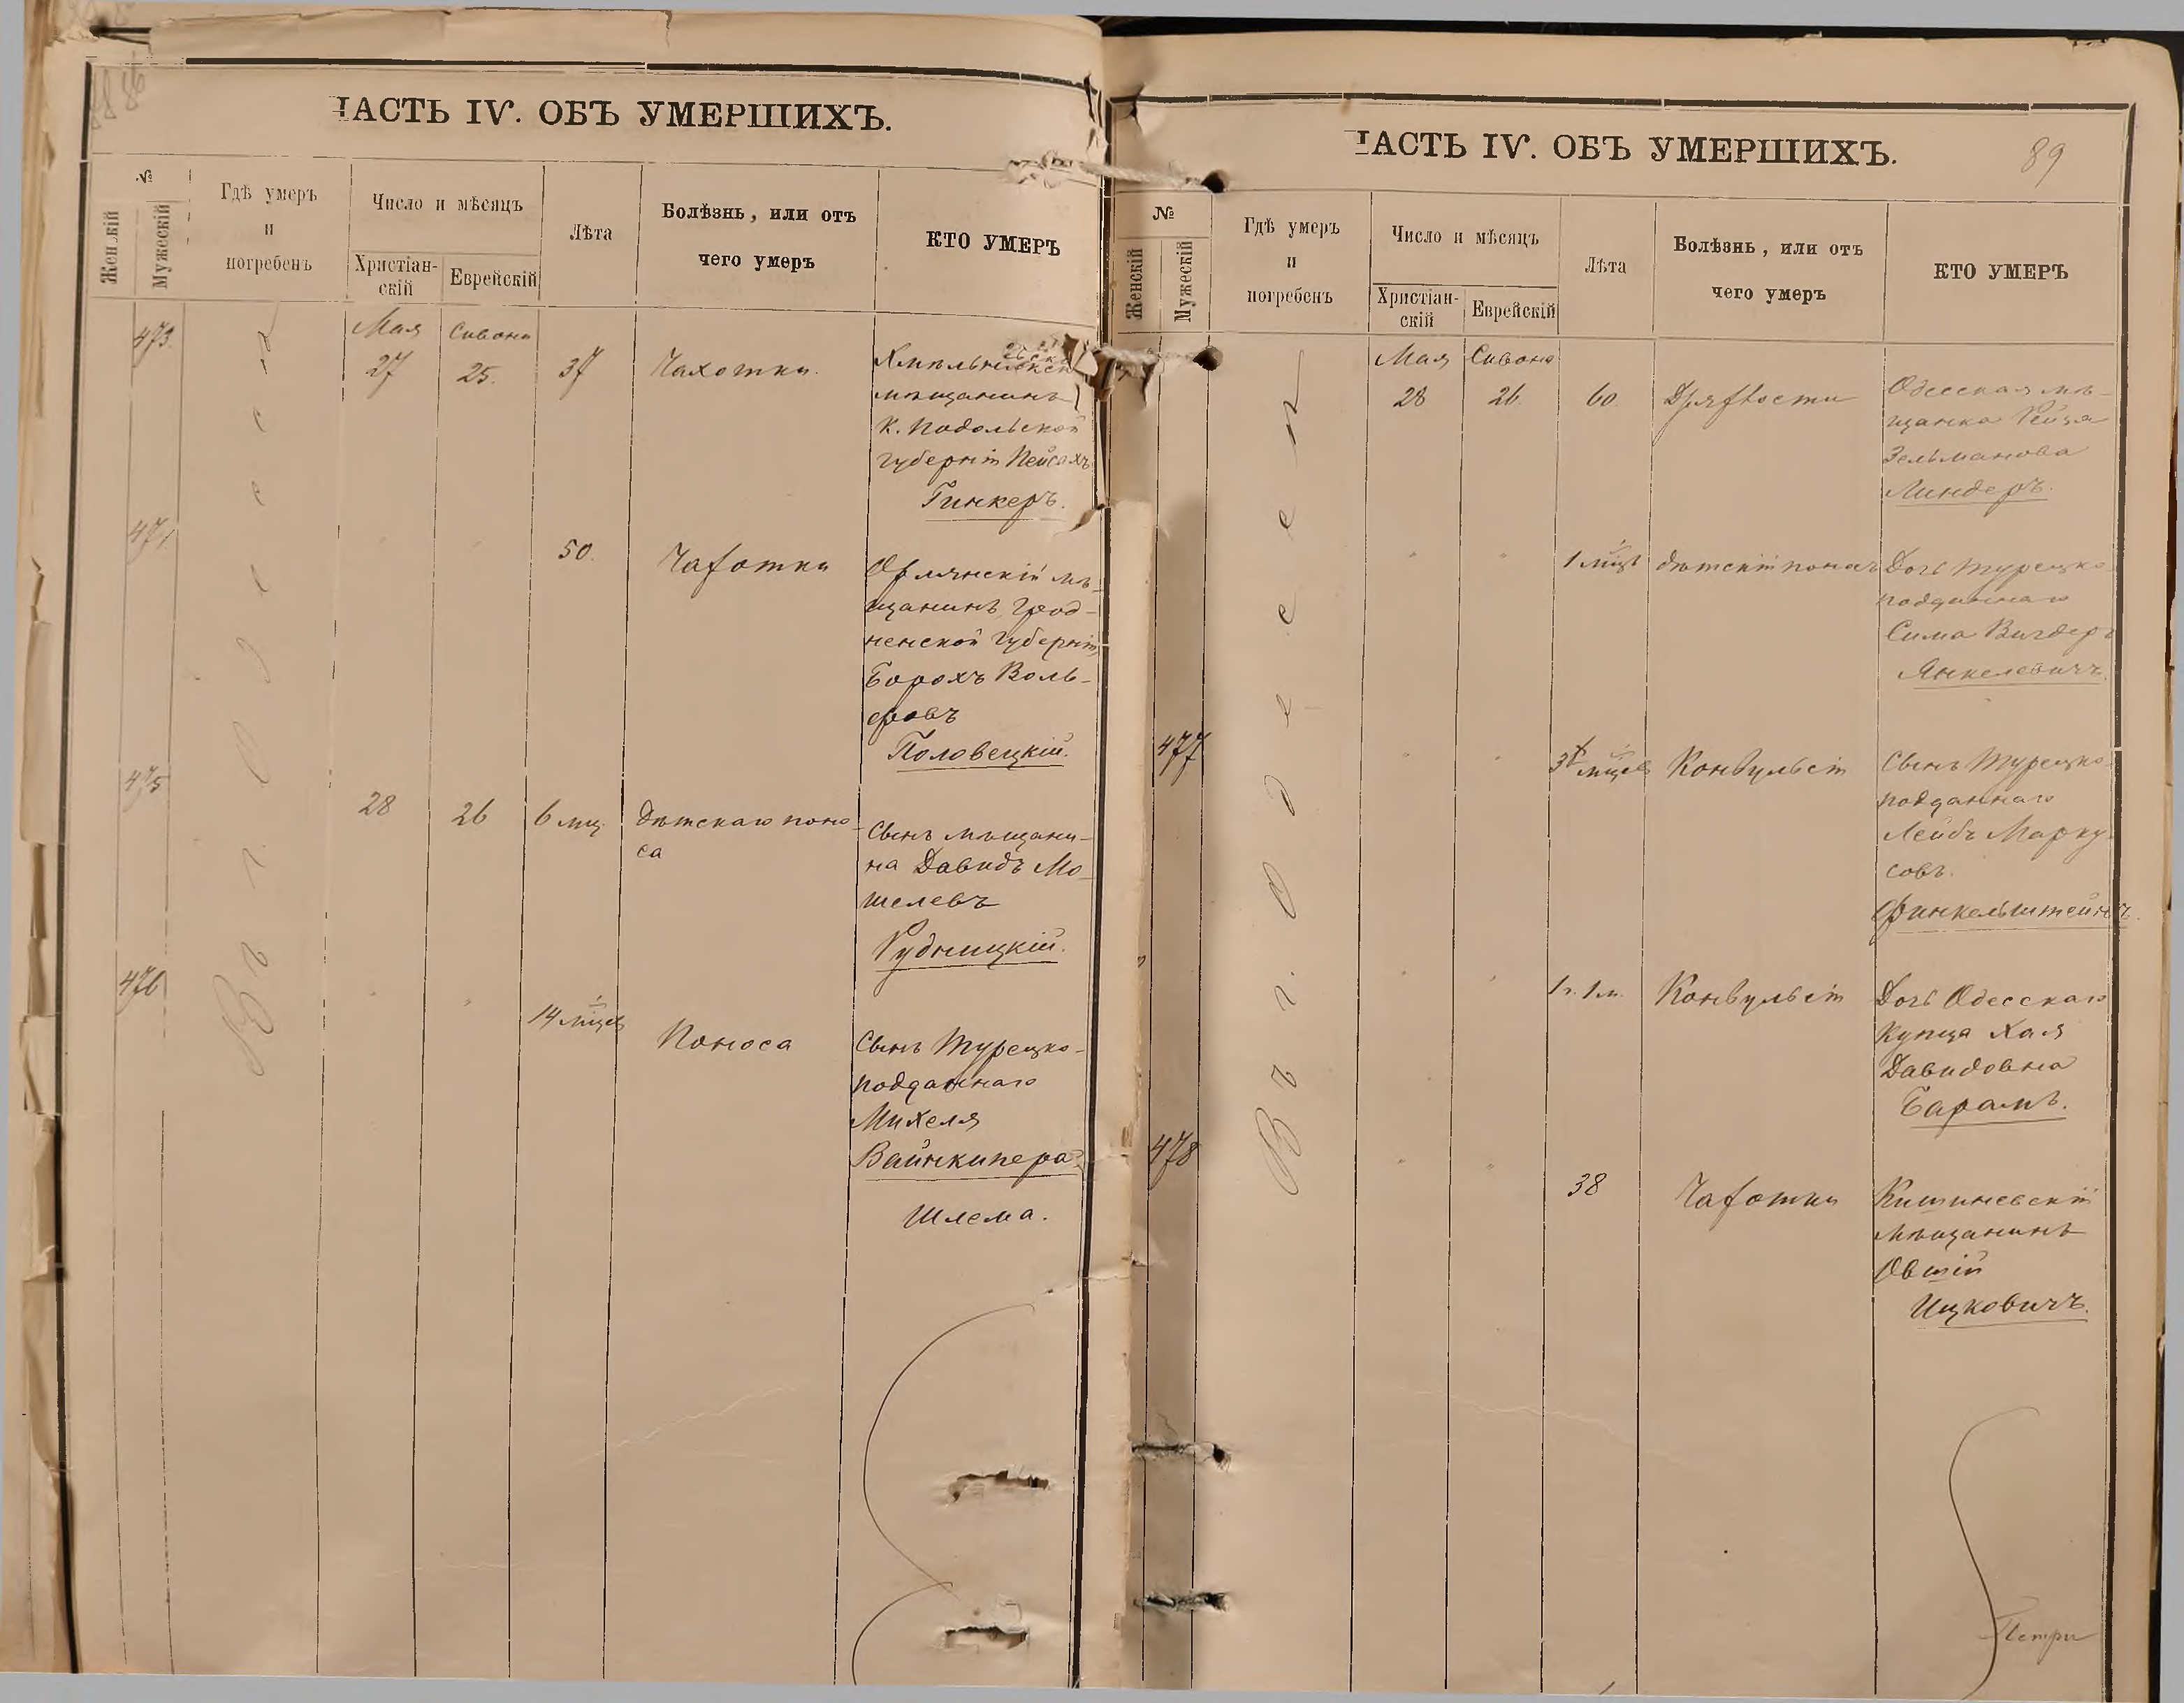 ЧАСТЬ IV. ОБЪ УМЕРШИХЪ.
№
Женскій
Мужескій
Гдѣ умеръ
и
погребенъ
Число и мѣсяцъ
Христіан-
скій
Еврейскій
Лѣта
Болѣзнь, или отъ
чего умеръ
КТО УМЕРЪ
Въ г. Одессѣ
473.
Мая
27
Сивона
25.
37
Чахотки.
Хмѣльницкій
мѣщанинъ
К. Подольской
губерніи Пейсахъ
Гинкеръ.
474
" "
50.
Чахотки
мѣ-
щанинъ Грод-
ненской губерніи
Борохъ Воль-
фовъ
Половецкій.
475
28
26
6 мц.
Дѣтскаго поно-
са
Сынъ мѣщани-
на Давидъ Мо-
шелевъ
Рудницкій.
476
" "
14 мцев
Поноса
Сынъ Турецко-
подданнаго
Михеля
Вайнкипера
Шлема.
ЧАСТЬ IV. ОБЪ УМЕРШИХЪ.
89
№
Женскій
Мужескій
Гдѣ умеръ
и
погребенъ
Число и мѣсяцъ
Христіан-
скій
Еврейскій
Лѣта
Болѣзнь, или отъ
чего умеръ
КТО УМЕРЪ
Въ г. Одессѣ
Мая
28
Сивона
26.
60.
Дряхлости
Одесская мѣ-
щанка Рейза
Зельманова
Линдеръ.
" "
1 мцъ
Дѣтскій поносъ
Дочь Турецко
подданнаго
Сима Вигдеръ
Янкелевичъ.
477
" "
3 мцев
Конвульсіи
Сынъ Турецко
подданнаго
Лейбъ Марку
совъ.
Финкельштейнъ.
" "
1 г. 1 м.
Конвульсіи
Дочь Одесскаго
купца Хая
Давидовна
Барамъ.
478
" "
38
Чахотки
Кишиневскій
мѣщанинъ
Овшій
Ицковичъ.